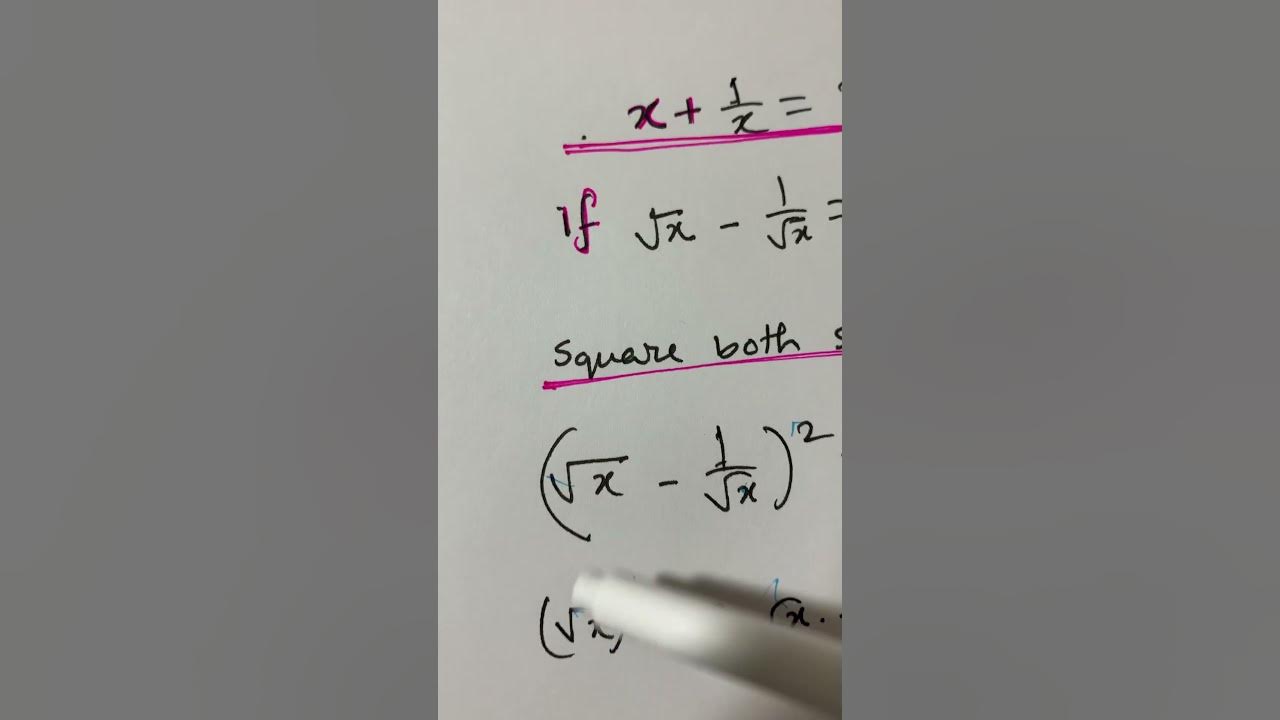 . x + 1/x =
If √x - 1/√x =
square both
(√x - 1/√x)²
(√x) √x .